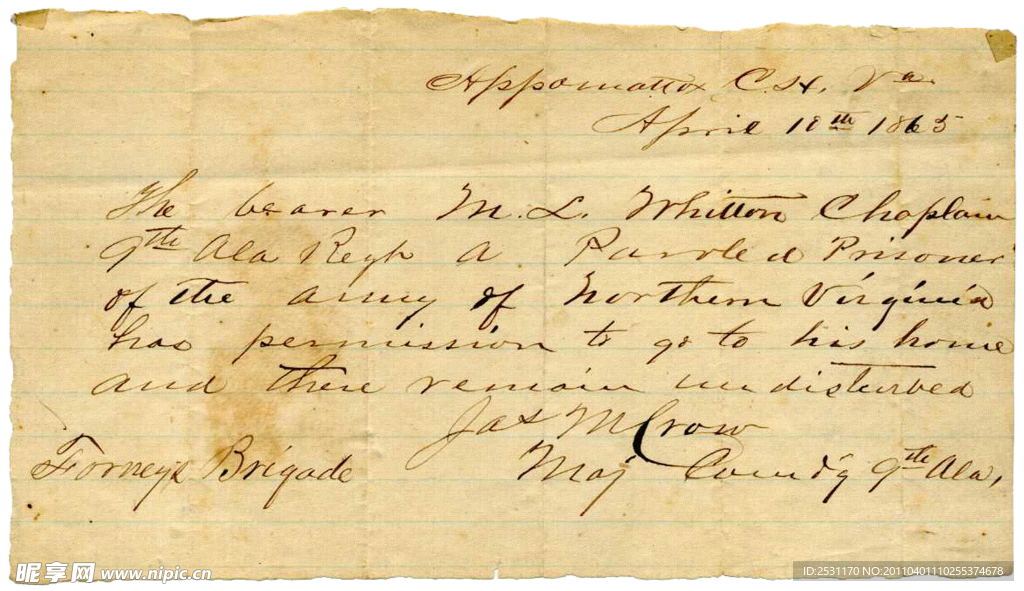 Appomattox C.H. Va
April 10th 1865
The bearer M. L. Whitton Chaplain
9th Ala Regt a Paroled Prisoner
of the army of Northern Virginia
has permission to go to his home
and there remain undisturbed
Jas M Crow
Forneys Brigade Maj Comd'g 9th Ala,
昵享网 www.nipic.cn
ID:2531170 NO:20110401110255374678